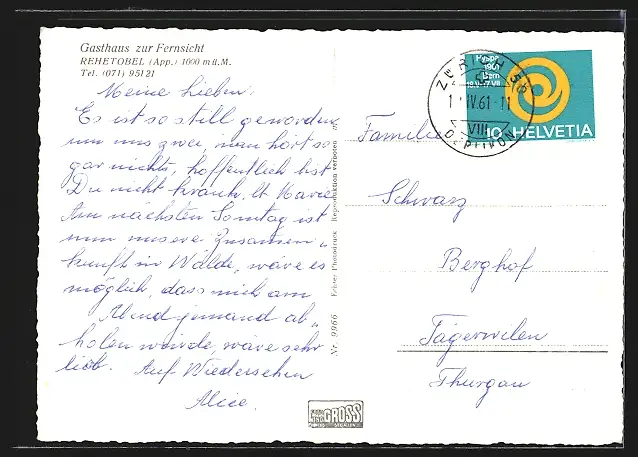 Gasthaus zur Fernsicht
REHETOBEL (App.) 1000 m ü. M.
Tel. (071) 95121
Meine Lieben!
Es ist so still geworden
um uns zwei, man hört so
gar nichts, hoffentlich bist
Du nicht krank, lb. Marie
Am nächsten Sonntag ist
nun unsere Zusammen-
kunft in Wälde, wäre es
möglich, dass mich am
Abend jemand ab-
holen würde, wäre sehr
lieb. Auf Wiedersehen
Alice.
Nr. 9966 Fehrer Photodruck Reproduktion verboten
GROSS
Hyspa
1961
Bern
10 HELVETIA
IV.61-11
VIII
Familie
Schwarz
Berghof
Tägerwilen
Thurgau